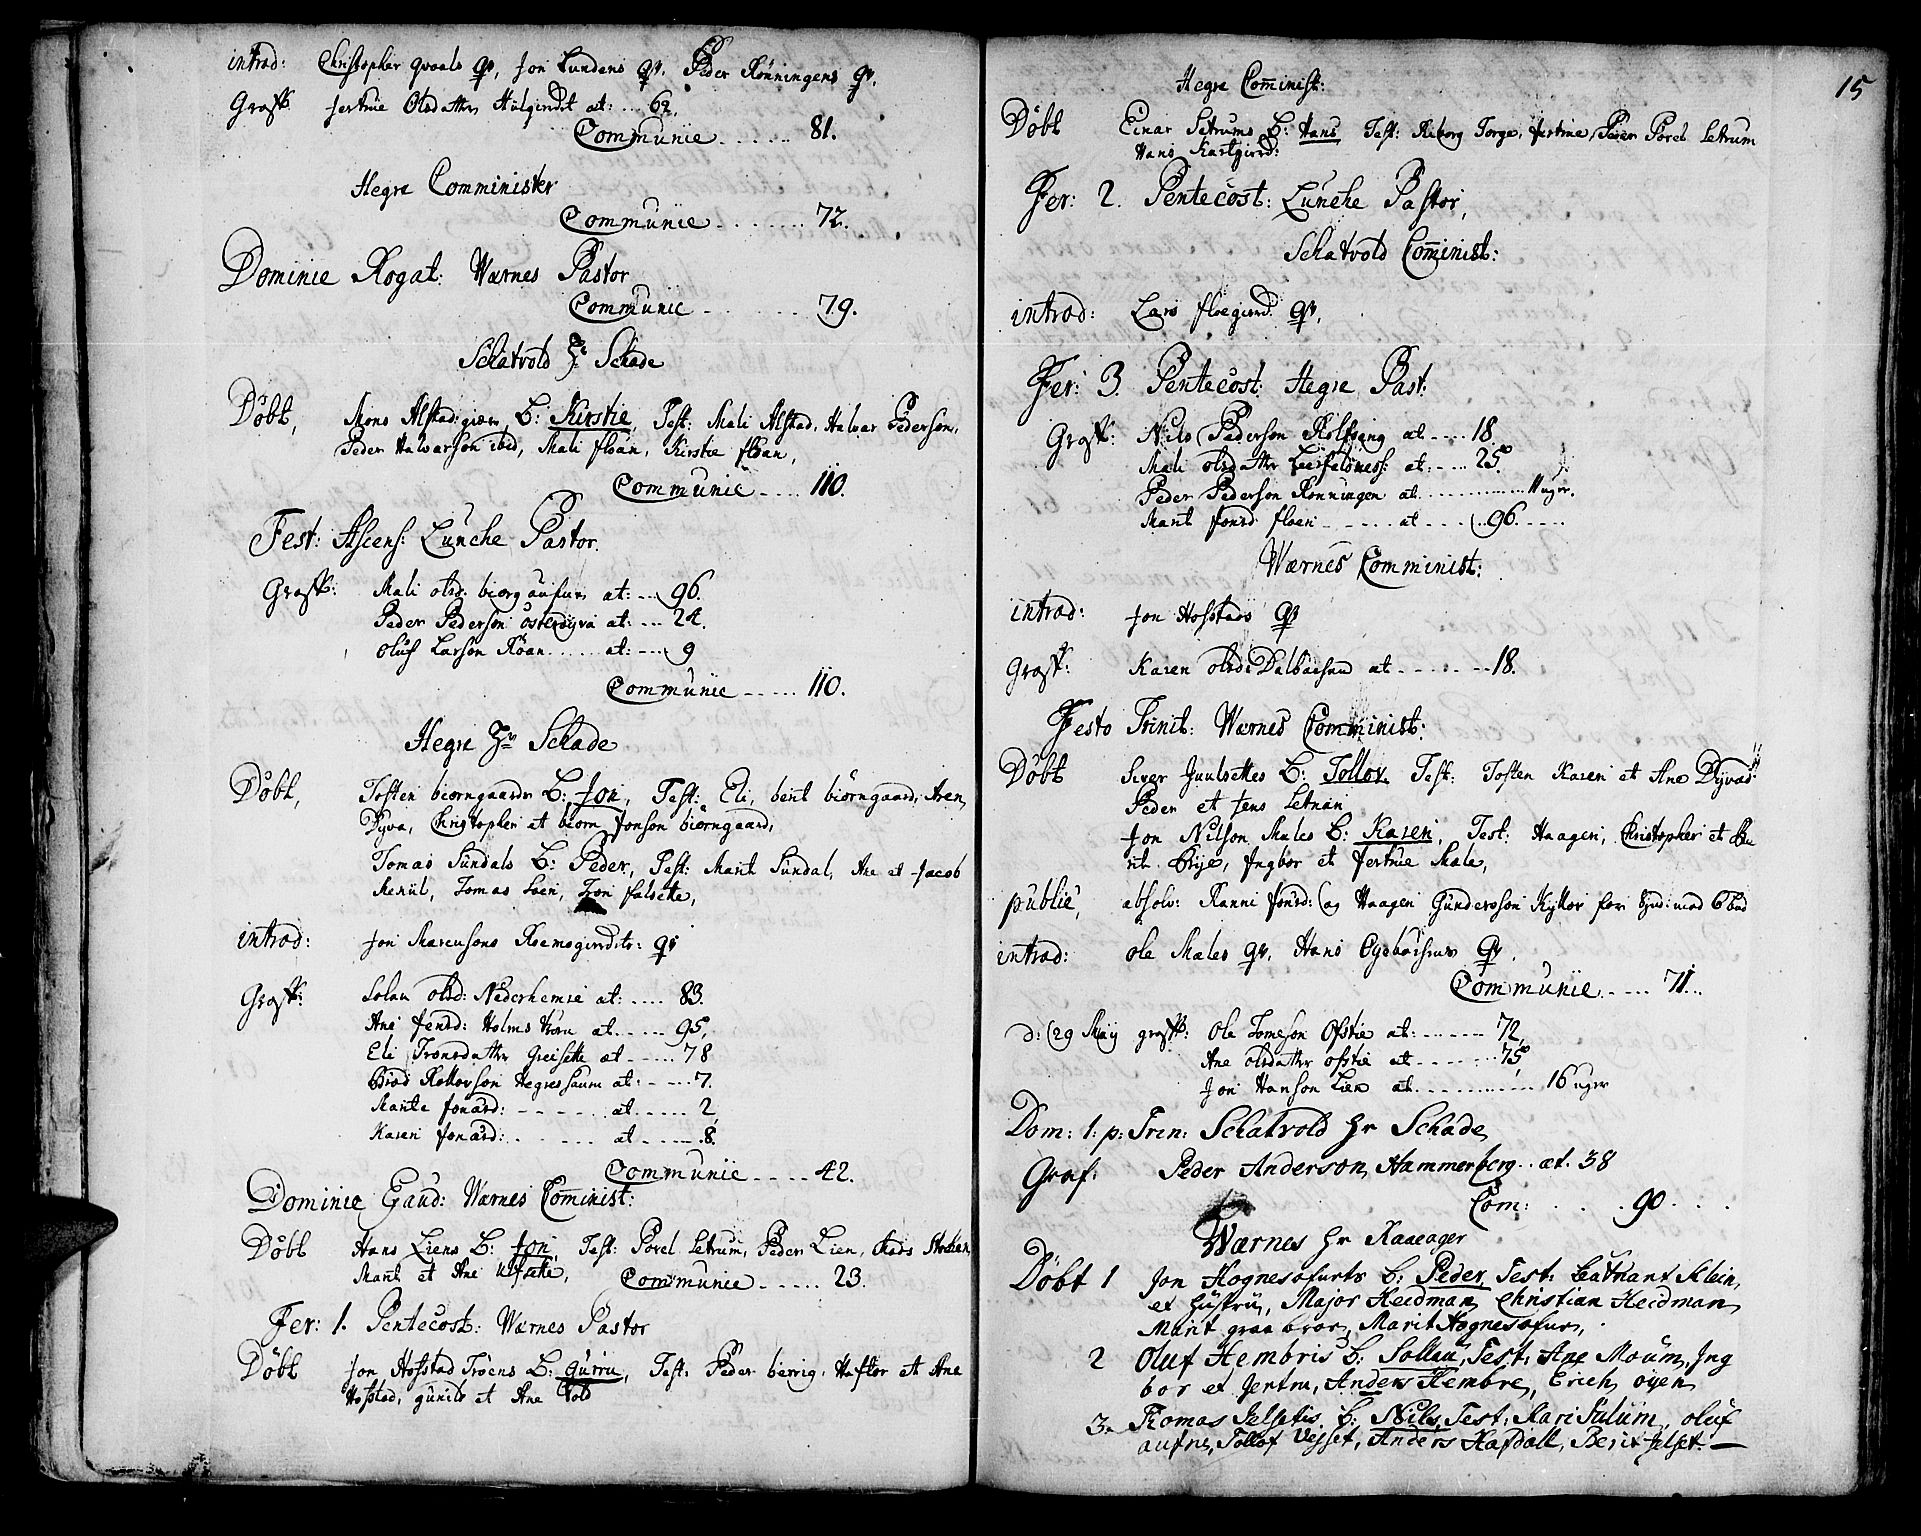 introd: Christopher qvaals qv, Jon Lundens qv. Peder Rønningens qv.
Grafk: Jertrue Olsdatter Hulgierdet æt: ... 62.
Communie ...... 81.
Hegre Comminister
Communie ........ 72.
Dominic Rogat: Wærnes Pastor
Communic ........ 79.
Schatvold Hr Schade
Døbt, Mons Alstad B: Kirstie, Test: Mali Alstad, Halvar Pederson,
Peder Halvarson ibid, Mali floan, Kirstie floan,
Communic ..... 110.
Fest: Ascens: Lunche Pastor.
Grafk: Mali olsd: æt: ... 96.
Peder Pederson østerdyva æt: ... 24.
Oluf Larson Røan ...... æt: ... 9
Communie ..... 110.
Hegre Hr Schade
Døbt, Tosten biørngaards B: Jon, Test: Eli, berit biørngaard, Aren
Dyva, Christopher et biørn Jonson biørngaard,
Tomas Sundals B: Peder, Test: Marit Sundal, Ane et Jacob
Merül, Tomas Loen, falsette,
introd: Jon Marensons qv
Grafk: Solau olsd: Nederhemre æt: ..... 83.
Ane Jensd: Holms æt ..... 95,
Eli Tronsdatter Greisette æt ..... 78
Brod Rollovson Hegressaum æt: .... 7.
Marite Jonsrd: ...... æt ..... 2
Karen Jonsrd: ...... æt ..... 8.
Communie ..... 42.
Dominic Exaud: Wærnes Cominist:
Døbt Hans Liens B: Jon, Test: Porel Letrum, Peder Lien,
Marit et Ane Communie ..... 23.
Fer: 1. Pentecost: Wærnes Pastor
Døbt Jon Hofstad Trøens B: gurru, Test: Peder berrig, Haftor et Ane
Hofstad, gunild et Ane Vold
15
Hegre Cominist:
Døbt Einar Letrums B: Hans Test: Torge, Jertrue, Porel Letrum
Hans
Fer: 2. Pentecost: Lunche Pastor,
Schatvold Cominist:
introd: Lars floegierd qv.
Fer: 3. Pentecost: Hegre Past:
Grafk: Nils Pederson Rolfseng æt .... 18
Mali olsdatter æt: .... 25.
Peder Pederson Rønningen æt ........ 11 uger.
Marit Jonsd floen ..... æt .... 96.
Wærnes Comminist:
introd: Jon Hofstads qv
Grafk: Karen olsd: Dalbachend æt ...... 18.
Festo Trinit: Wærnes Comminist:
Døbt Siver Juulsettes B: Tollov Test: Tosten Karen et Ane Dyvad
Peder et Jens Letnan
Jon Nilson Males B: Karen, Test: Haagen, Christopher et Be
rit Brye, Ingbor et Jertrue Male,
public, absolv: Ranni Jonsd: og Haagen Gunderson Kykkor for synd: mod 6 bud
introd: ole Males qv, Hans Eydbachens qv.
Communie ..... 71.
d: 29 Maij grafk: Ole Tomeson Ofstie æt: ...... 72,
Ane olsdatter ofstie æt ...... 75
Jon Hanson Lien æt ........ 16 uger
Dom: 1. p: Trin: Schatvold Hr Schade
Graf: Peder Anderson Hammerberg .. æt. 38
Com: . . . 90 . . .
Wærnes Hr Raaeager
Døbt 1 Jon Hognesofurts b: Peder, Test: Klein,
et Hüstrü, Major Heidman, Christian Heidman
Marit graa bror, Marit Hognesofur,
2 Oluf Hembris b: Sollau, Test: Ane Moum, Ing
bor et Jertru, Anders Hembre, Erich øyen
3. Thomas Jelsetis b: Nils, Test: Kari Fulum, oluf
aufne, Tollof Vesset, Anders Hafdall, Berit Jelset